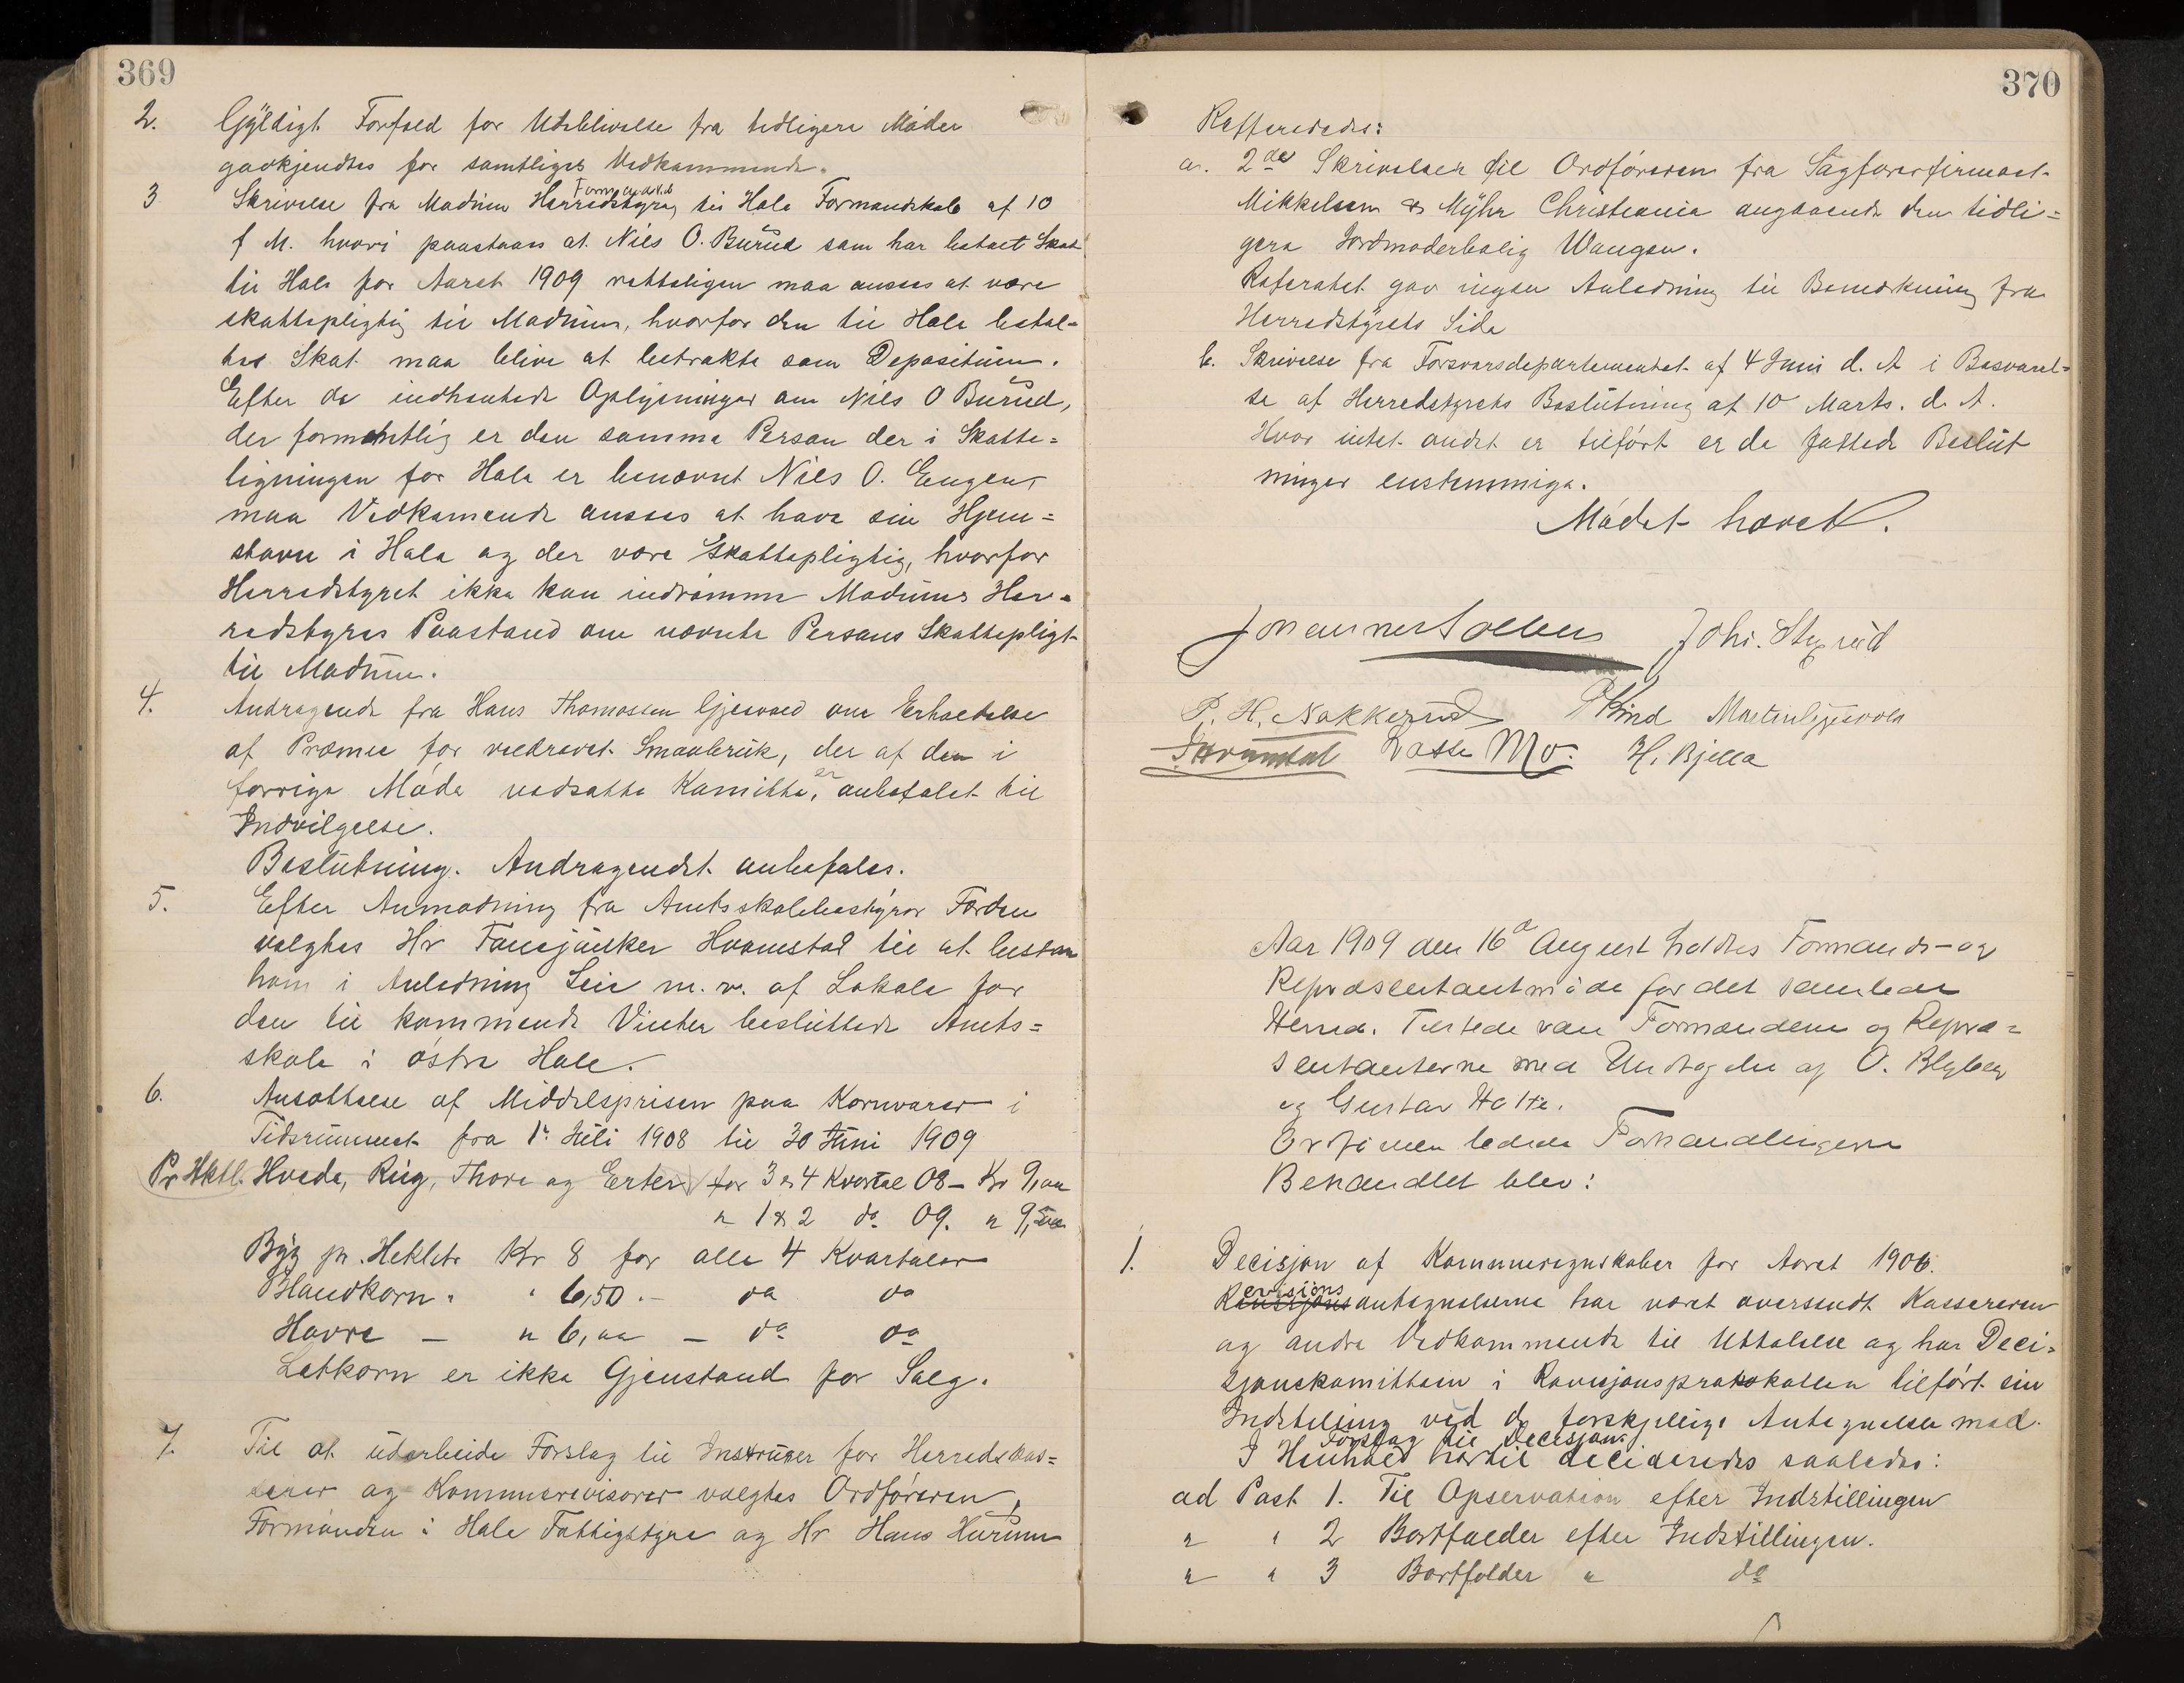 369
2. Gyldigt Forfald for Udeblivelse fra tidligere Møder
godkjendtes for samtliges Vedkommende.
3 Skrivelse fra Modum Herredstyre Formandskab til Hole Formandskab af 10
f M. hvori paastaaes at Nils O. Burud som har betalt Skat
til Hole for Aaret 1909 retteligen maa ansees at være
skattepligtig til Modum, hvorfor den til Hole betal=
tes Skat maa blive at betrakte som Depositum.
Efter de indhentede Oplysninger om Nils O Burud,
der formentlig er den samme Person der i Skatte=
ligningen for Hole er benævnt Nils O. Eugen,
maa Vedkomende ansees at have sin Hjem=
stavn i Hole og der være Skattepligtig, hvorfor
Herredstyret ikke kan indrømme Modums Her=
redstyres Paastand om nævnte Persons Skattepligt
til Modum.
4. Andragende fra Hans Thomassen Gjesvold om Erholdelse
af Præmie for veldrevet Smaabruk, der af den i
forrige Møde nedsatte Komitte, er anbefalet til
Indvilgelse.
Beslutning. Andragendet anbefales.
5. Efter Anmodning fra Amtsskolebestyrer Førden
valgtes Hr Fanejunker Hvamstad til at bistaa
ham i Anledning Leie m. v. af Lokale for
den til kommende Vinter besluttede Amts=
skole i østre Hole.
6. Ansættelse af Middelsprisen paa Kornvarer i
Tidsrummet fra 1. Juli 1908 til 30 Juni 1909
Pr Hktl. Hvede, Rug, Thore og Erter for 3 & 4 Kvartal 08 – Kr 9,00
" 1 & 2 do. 09. " 9,
Byg pr. Hektlt. Kr 8 for alle 4 Kvartaler
Blandkorn " " 6,50. – do do
Havre – " 6,00 – do do
Letkorn er ikke Gjenstand for Salg.
7. Til at udarbeide Forslag til Instruxer for Herredskas=
serer og Kommunerevisorer valgtes Ordføreren,
Formanden i Hole Fattigstyre og Hr Hans Hurum
370
Reffereredes:
a. 2de Skrivelser til Ordføreren fra Sagførerfirmaet
Mikkelsen & Myhr Christiania angaaende den tidli=
gere Jordmoderbolig Wangen.
Referatet gav ingen Anledning til Bemærkning fra
Herredstyrets Side
b. Skrivelse fra Forsvarsdepartementet af 4 Juni d. A i Besvarel=
se af Herredstyrets Beslutning af 10 Marts. d. A.
Hvor intet andet er tilført er de fattede Beslut
ninger enstemmige.
Mødet hævet.
Johannes Solberg Johs. Stixrud
P. H. Nakkerud Lind Martin Gjesvold
Hvamstad Lasse Mo. H. Bjella
Aar 1909 den 16de August holdtes Formands- og
Repræsentantmøde for det samlede
Herred. Tilstede var Formændene og Repræ=
sentanterne med Undtagelse af O. Blyberg
og Gustav Holte.
Ordføreren ledede Forhandlingerne
Behandlet blev:
1. Decisjon af Kommuneregnskaber for Aaret 1906.
Revisionsantegnelserne har været oversendt Kassereren
og andre Vedkommende til Uttalelse og har Deci=
sjonskomitteen i Revisjonsprotokollen tilført sin
Indstilling ved de forskjellige Antegnelser med
Forslag til Decisjon.
I Henhold hertil decideredes saaledes:
ad Post 1. Til Opservation efter Indstillingen
" " 2 Bortfalder efter Indstillingen.
" " 3 Bortfalder " do